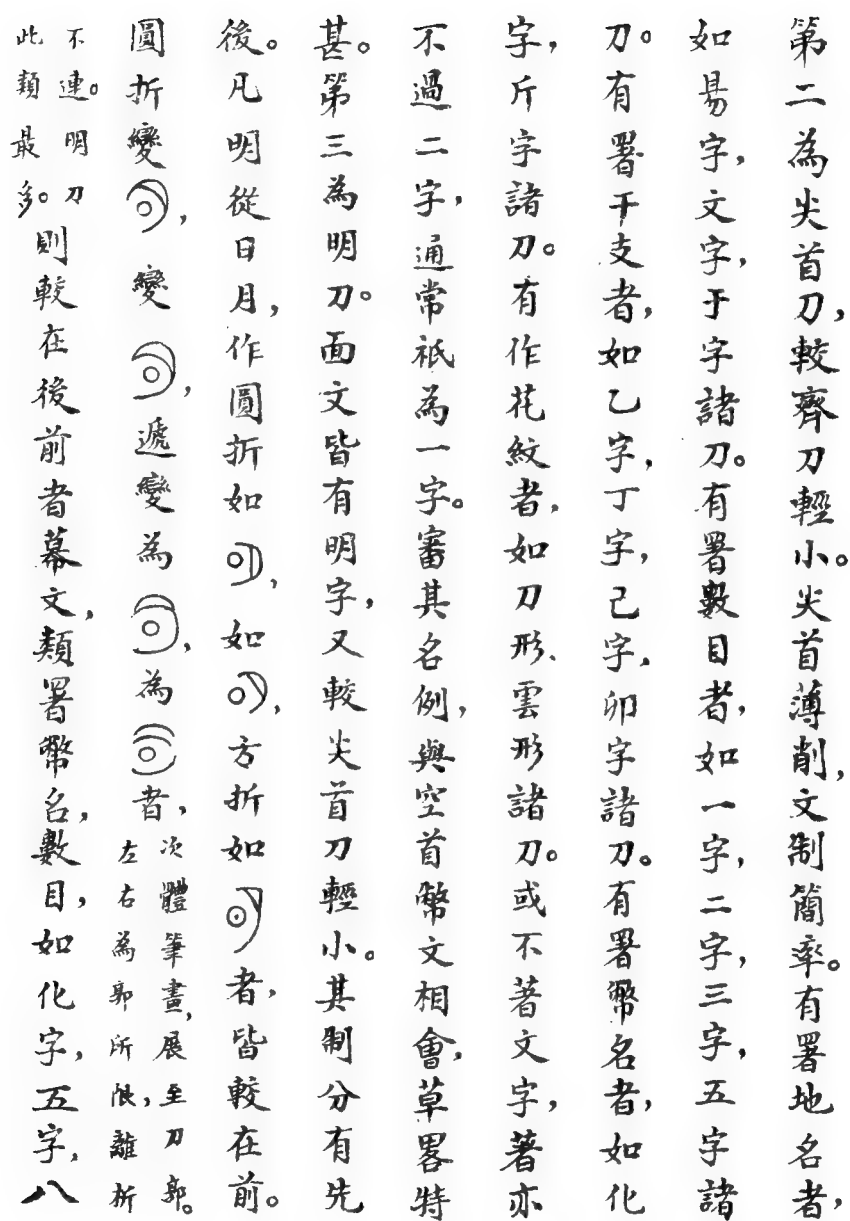 第二為尖首刀，較齊刀輕小。尖首薄削，文制簡率。有署地名者，
如昜字，文字，于字諸刀。有署數目者，如一字，二字，三字，五字諸
刀。有署干支者，如乙字，丁字，己字，卯字諸刀。有署幣名者，如化
字，斤字諸刀。有作花紋者，如刀形、雲形諸刀。或不著文字，著亦
不過二字，通常祇為一字。審其名例，與空首幣文相會，草畧特
甚。第三為明刀。面文皆有明字，又較尖首刀輕小。其制分有先
後。凡明從日月，作圓折如，如，方折如者，皆較在前。
圓折變，變，遞變為，為者，次體筆畫，展至刀郭。
左右為郭所限，離析
不連。明刀
此類最多。則較在後前者幕文，類署幣名，數目，如化字，五字，八